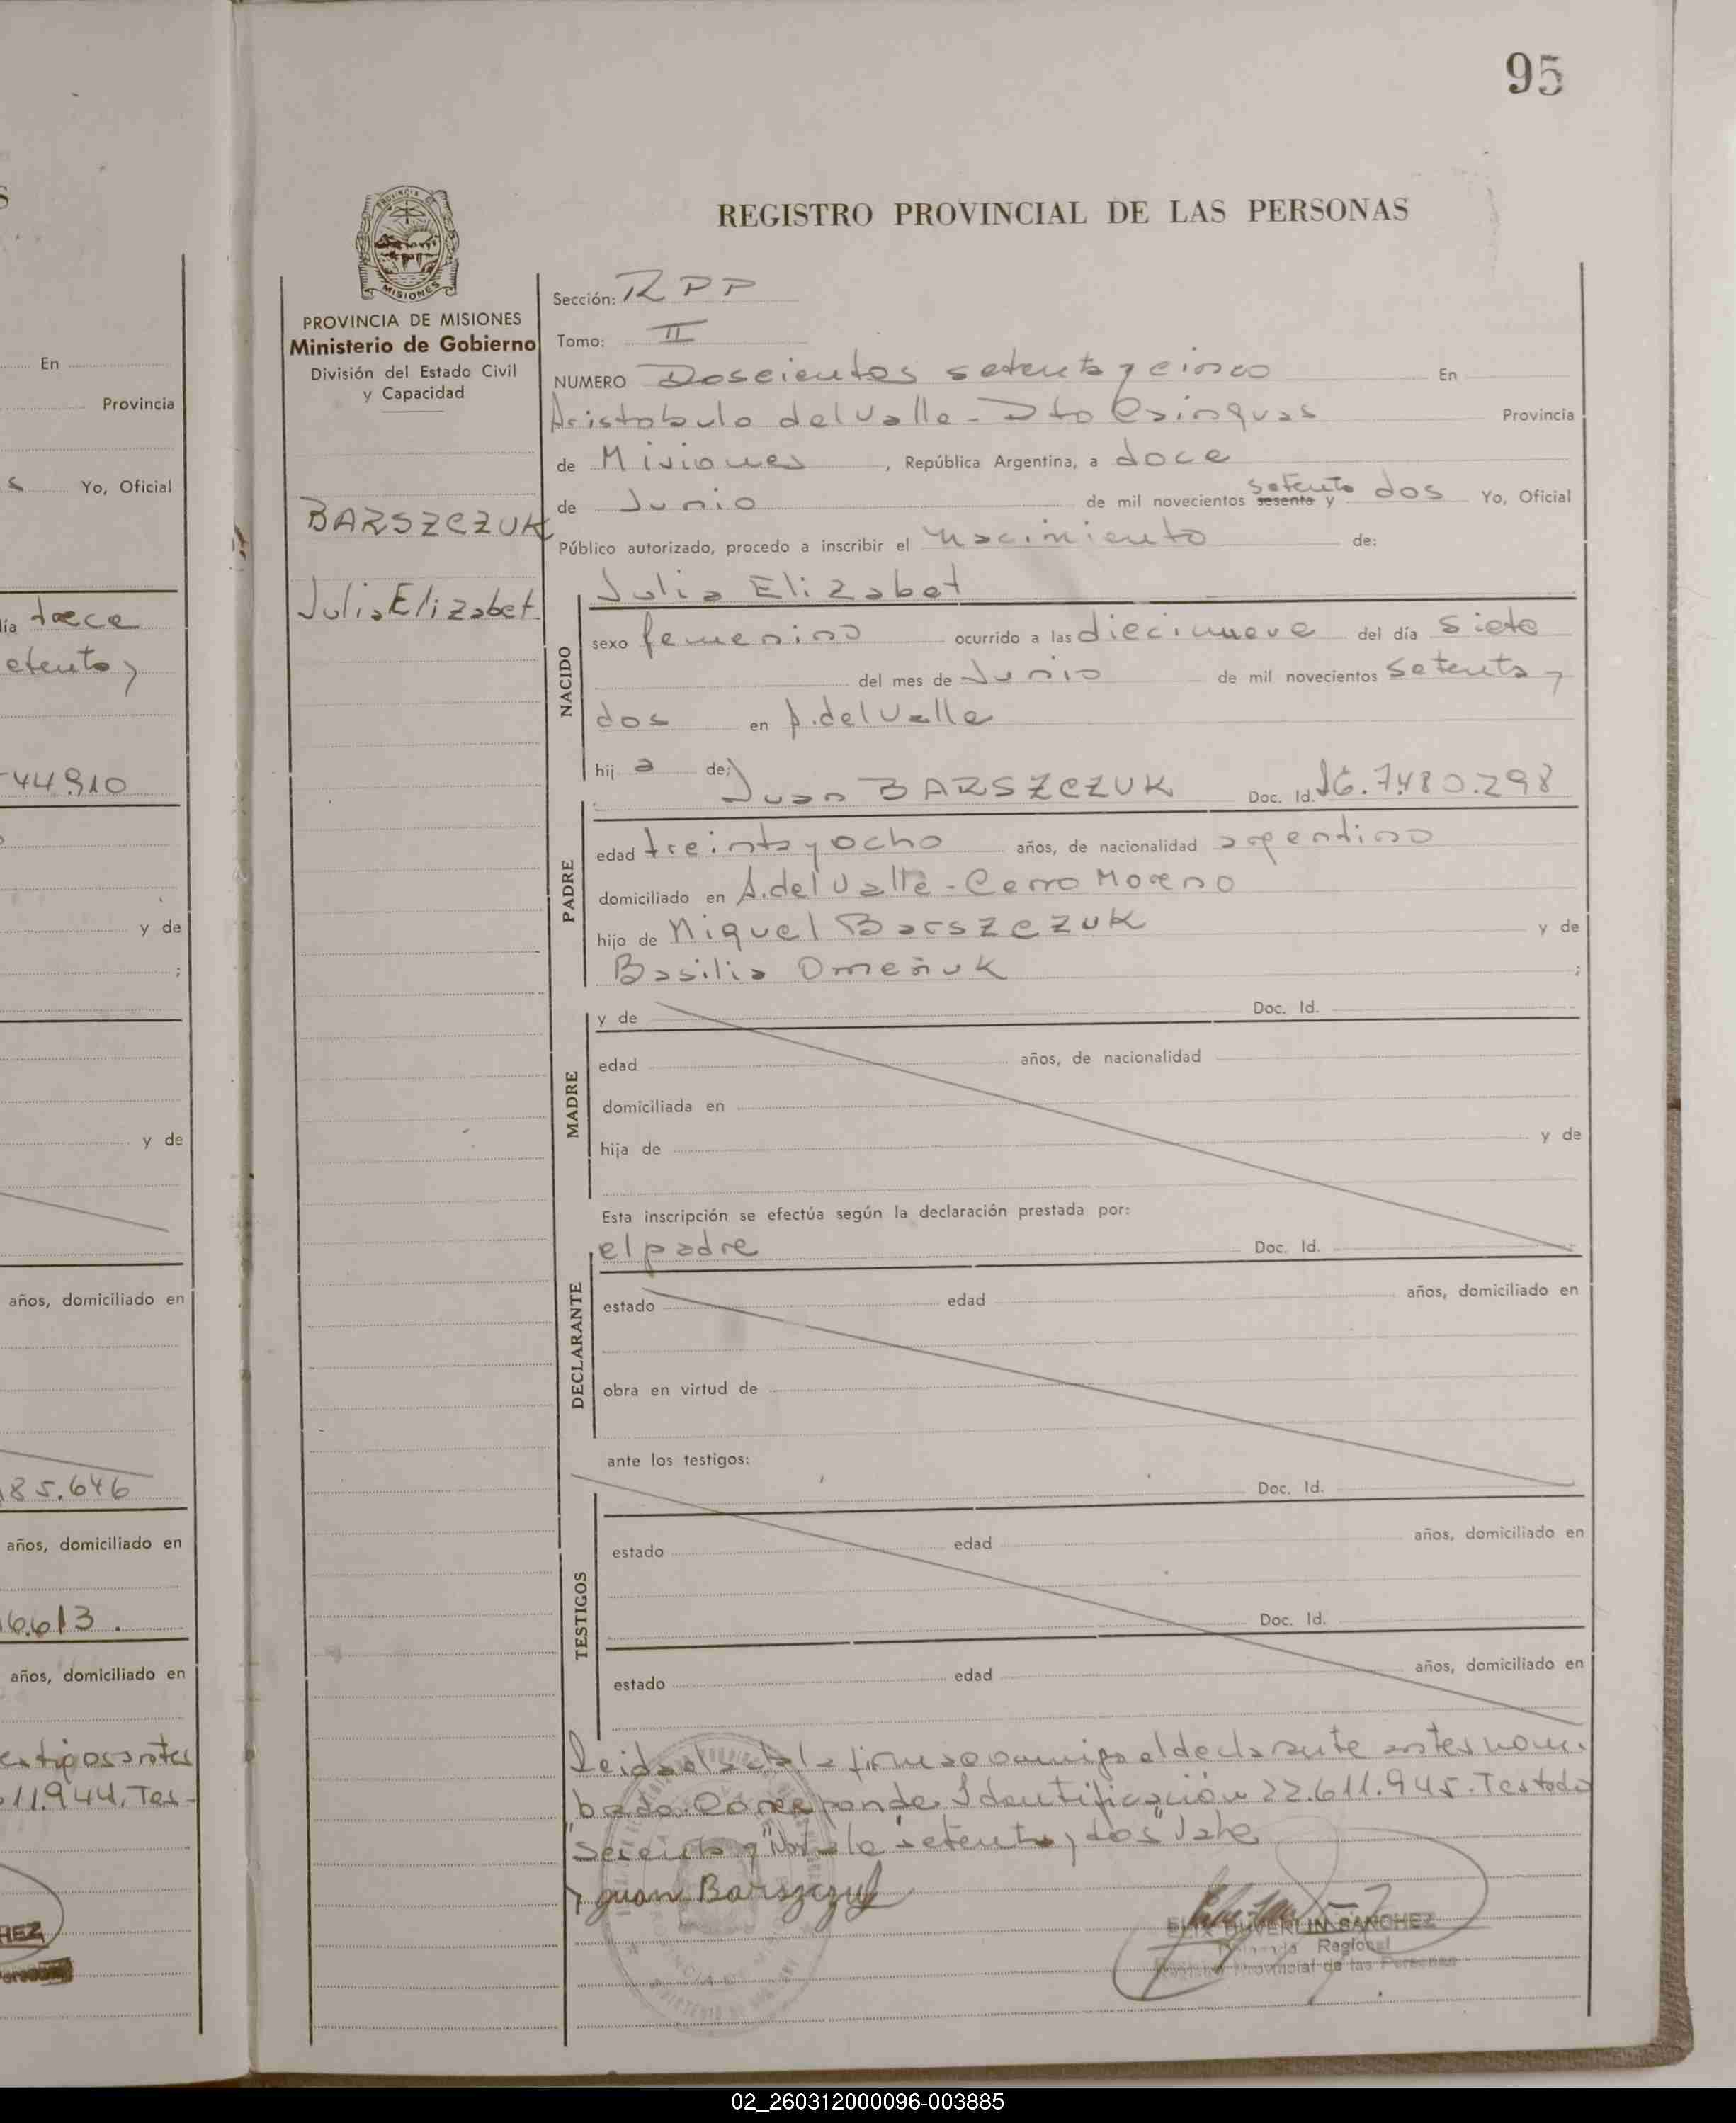 95
REGISTRO PROVINCIAL DE LAS PERSONAS
PROVINCIA DE MISIONES
Ministerio de Gobierno
División del Estado Civil
y Capacidad
BARSZCZUK
Julia Elizabet
Sección: RPP
Tomo: II
NUMERO Doscientos setenta y cinco En
Aristobulo del Valle - Dto Cainguas Provincia
de Misiones, República Argentina, a doce
de Junio de mil novecientos sesenta y setenta dos Yo, Oficial
Público autorizado, procedo a inscribir el nacimiento de:
Julia Elizabet
NACIDO
sexo femenino ocurrido a las diecinueve del día siete
del mes de Junio de mil novecientos setenta y
dos en A. del Valle
hij a de:
Juan BARSZCZUK Doc. Id.
PADRE
edad treinta y ocho años, de nacionalidad argentino
domiciliado en A. del Valle - Cerro Moreno
hijo de Miguel Barszczuk y de
Basilia Omeñuk ;
MADRE
y de Doc. Id.
edad años, de nacionalidad
domiciliada en
hija de y de
Esta inscripción se efectúa según la declaración prestada por:
el padre Doc. Id.
DECLARANTE
estado edad años, domiciliado en
obra en virtud de
ante los testigos:
Doc. Id.
TESTIGOS
estado edad años, domiciliado en
Doc. Id.
estado edad años, domiciliado en
Leida el acta la firma conmigo el declarante antes nom-
brado. Corresponde Identificación 22.611.945. Testado
"sesenta y" "setenta y dos" Vale
Juan Barszczuk
ELIX DUVERLIN SANCHEZ
Regional
Registro Provincial de las Personas
En
Provincia
Yo, Oficial
día trece
etenta y
44.910
y de
;
y de
años, domiciliado en
85.646
años, domiciliado en
6.613.
años, domiciliado en
estigos antes
11.944. Tes-
HEZ
02_260312000096-003885